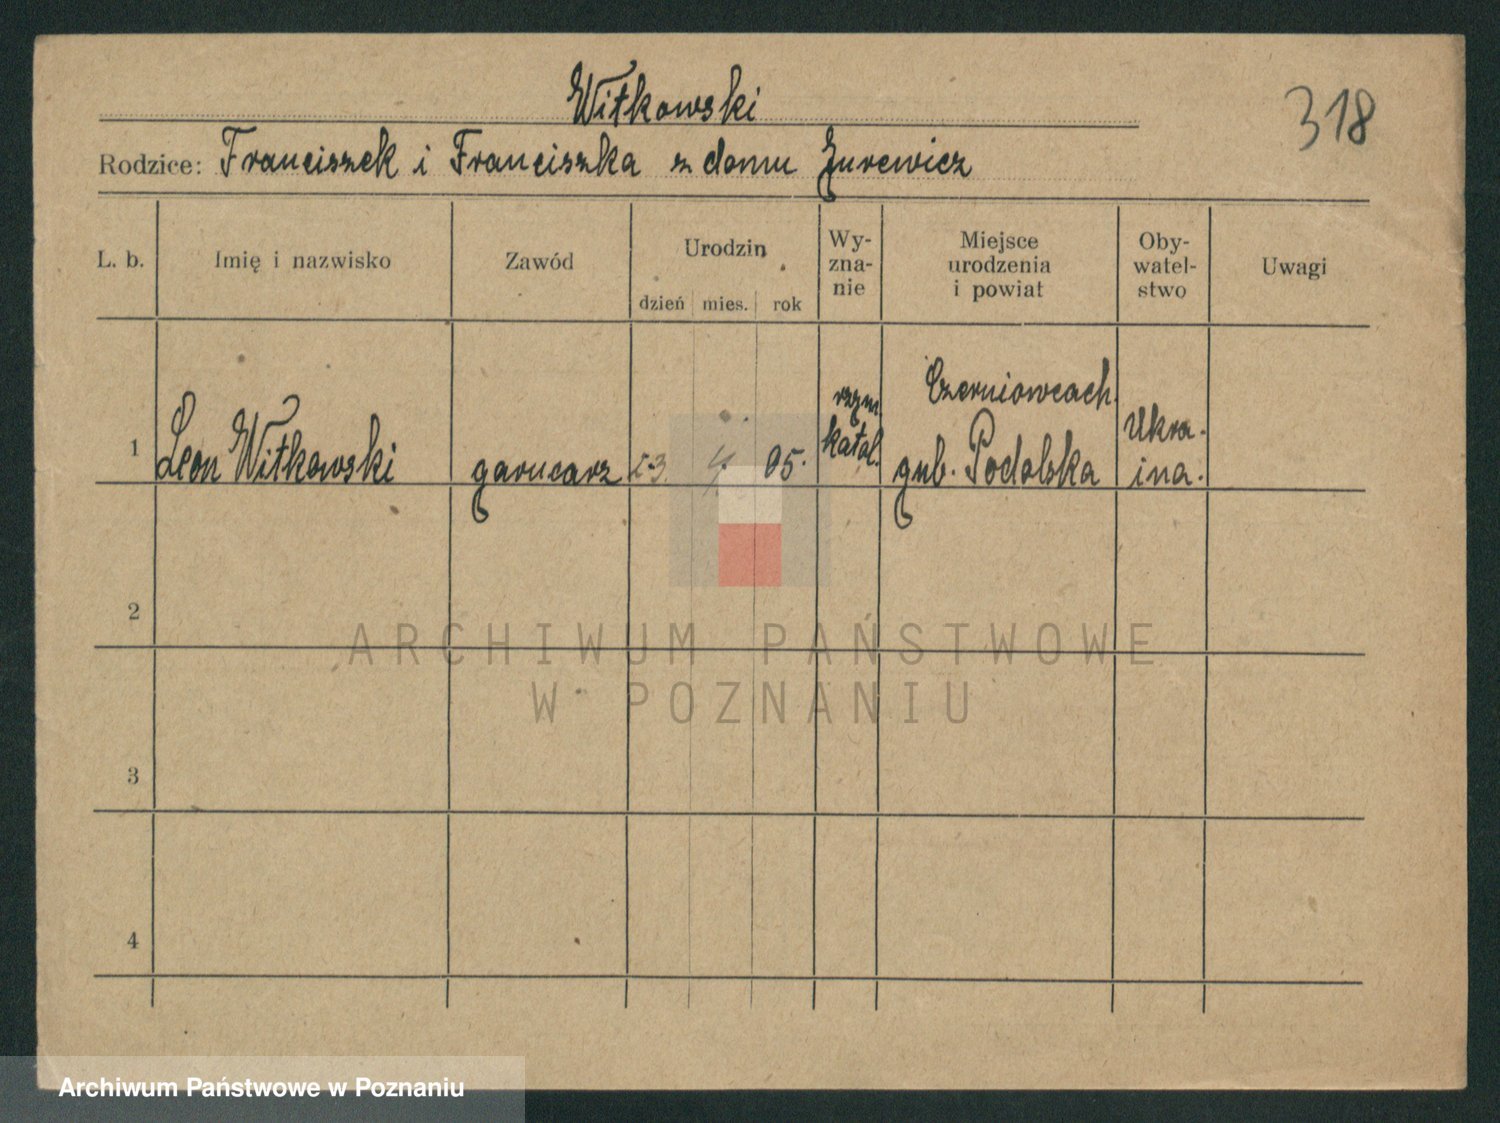 Witkowski
318
Rodzice: Franciszek i Franciszka z domu Żurewicz
L. b.
Imię i nazwisko
Zawód
Urodzin
dzień mies. rok
Wy-
zna-
nie
Miejsce
urodzenia
i powiat
Oby-
watel-
stwo
Uwagi
1
Leon Witkowski
garncarz
4. 05.
rzym.
katol.
Czerniowcach
gub. Podolska
Ukra-
ina.
2
3
4
ARCHIWUM PAŃSTWOWE
W POZNANIU
Archiwum Państwowe w Poznaniu